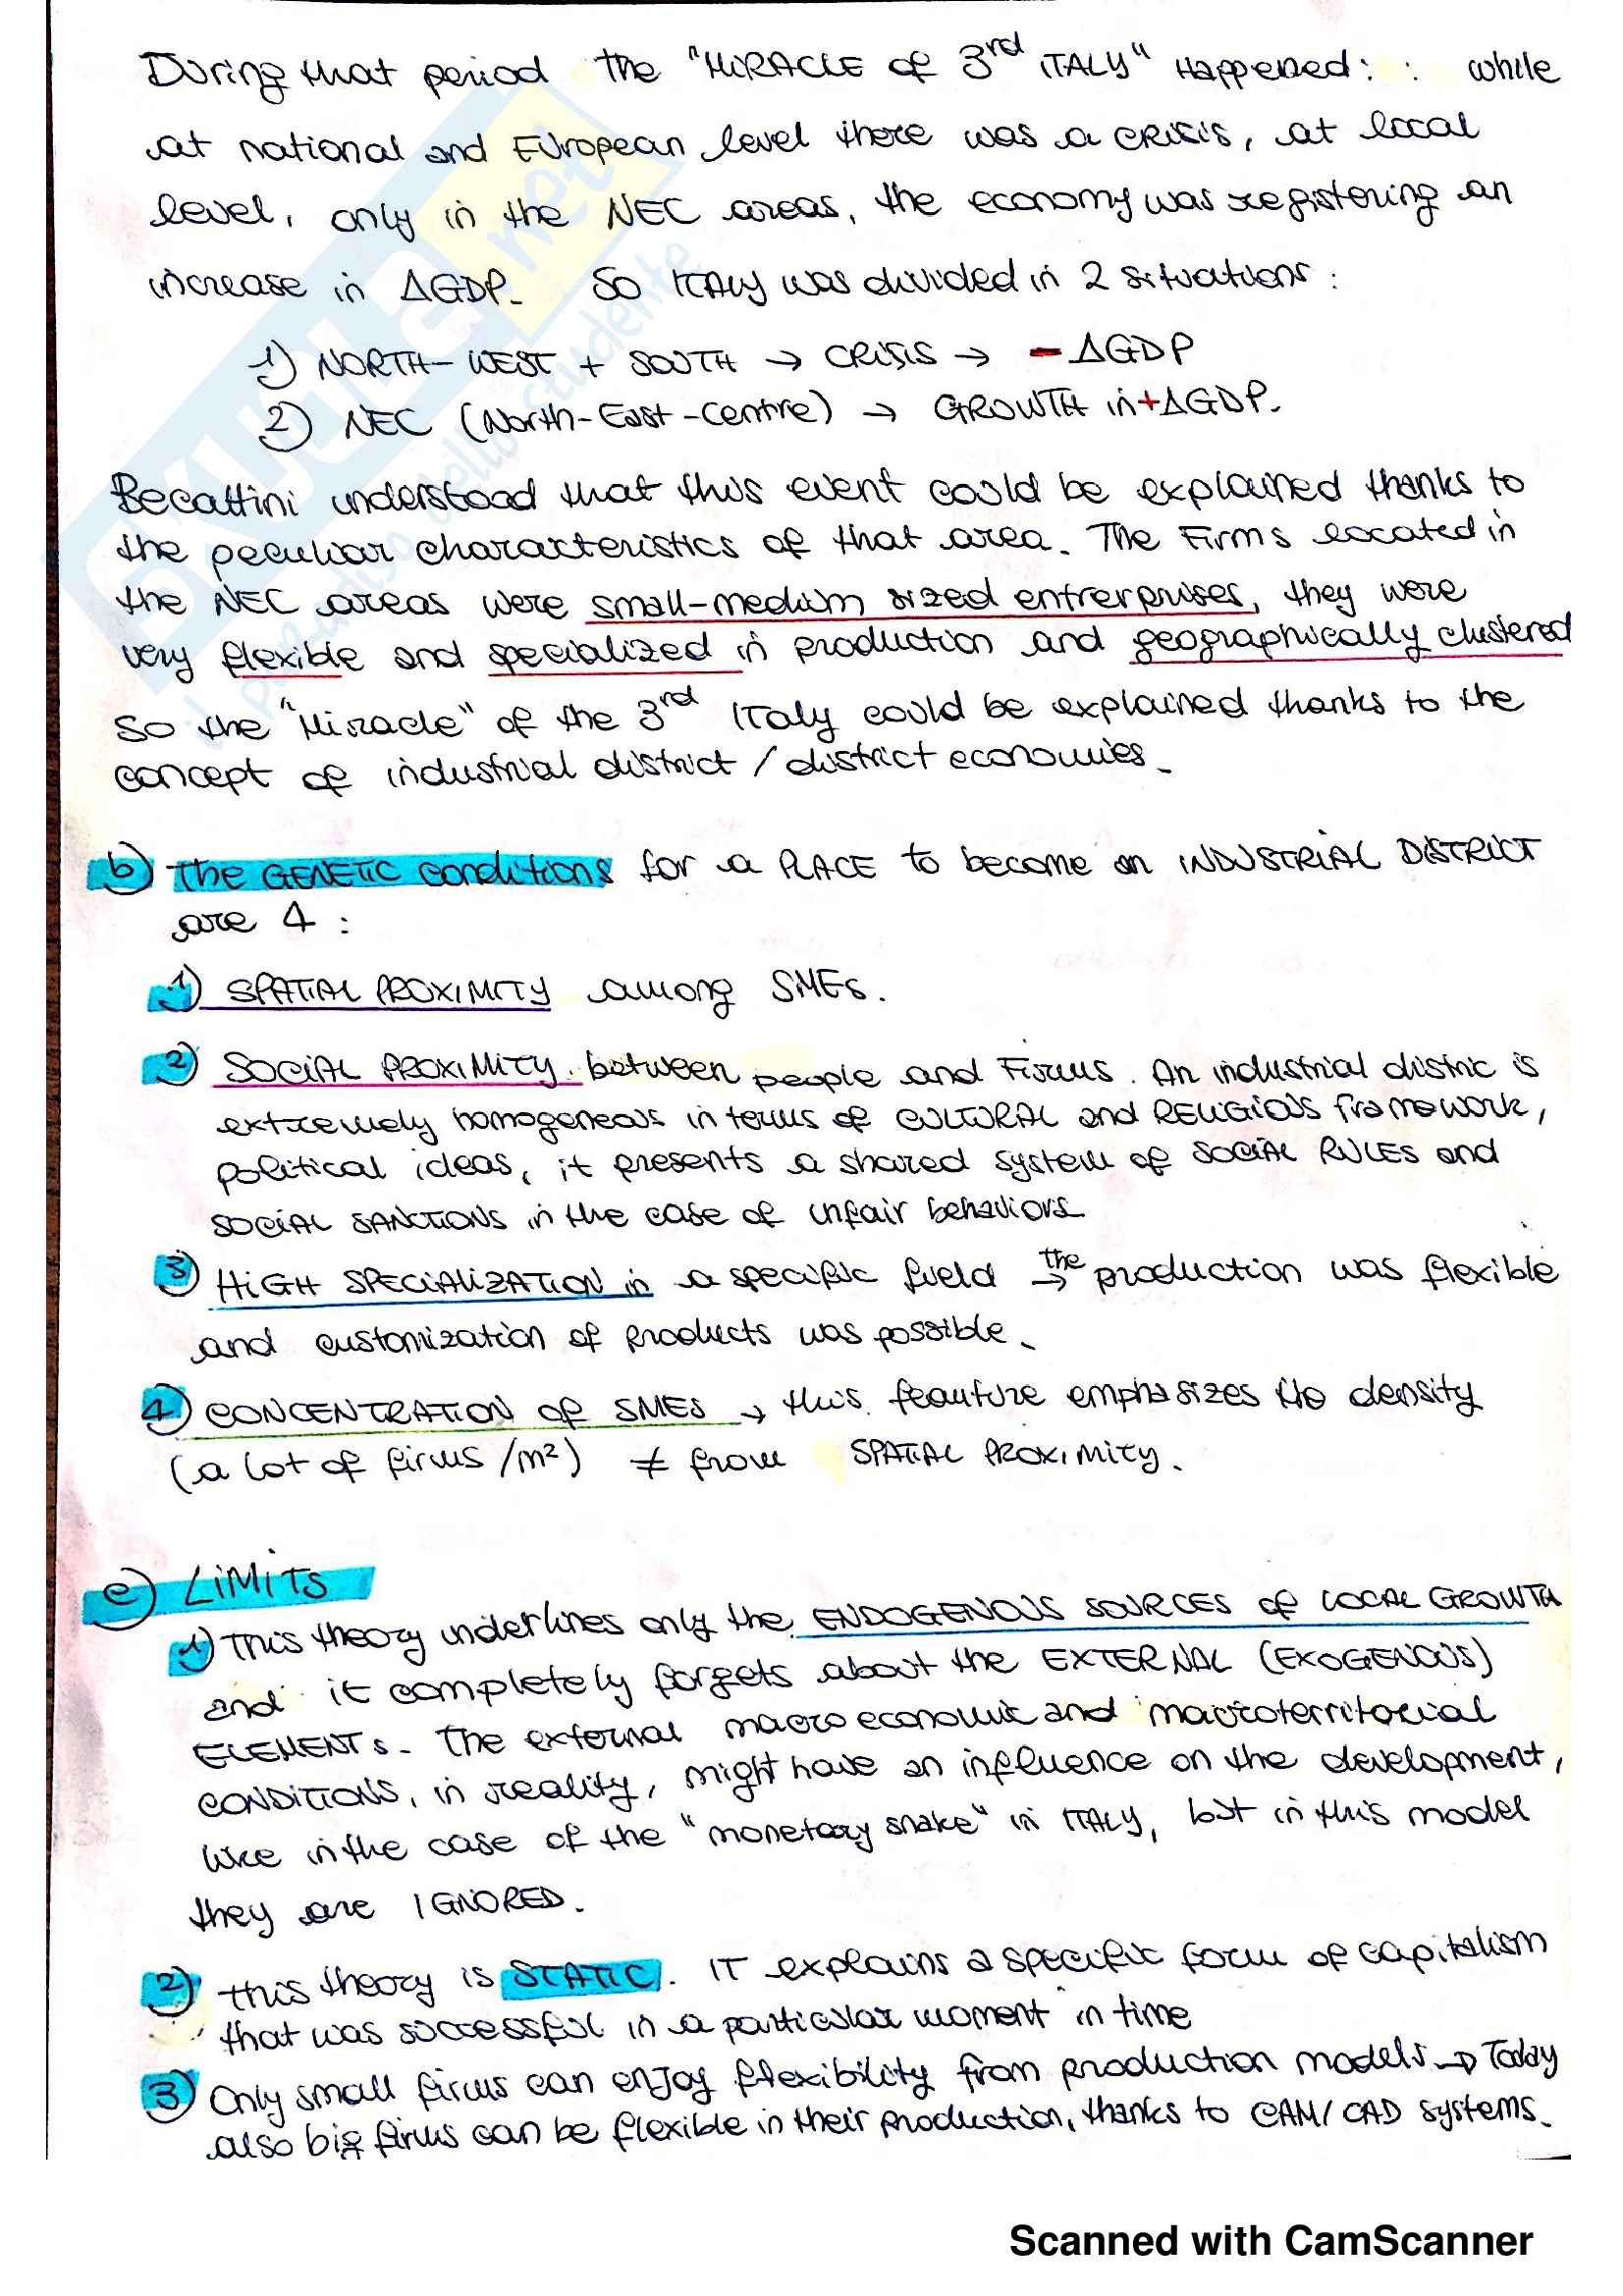 During that period the "MiRACLE of 3rd iTALY" Happened: : while
at national and European level there was a CRISIS, at local
level, only in the NEC areas, the economy was registering an
increase in ΔGDP. So ITALY was divided in 2 situations:
1) NORTH-WEST + SOUTH → CRISIS → - ΔGDP
2) NEC (North-East-Centre) → GROWTH in +ΔGDP.
Becattini understood that this event could be explained thanks to
the peculiar characteristics of that area. The Firms located in
the NEC areas were small-medium sized entrerprises, they were
very flexible and specialized in production and geographically clustered
So the "Miracle" of the 3rd ITaly could be explained thanks to the
concept of industrial district / district economies.
b) The GENETIC conditions for a PLACE to become an INDUSTRIAL DISTRICT
are 4:
1) SPATIAL PROXIMITY among SMEs.
2) SOCIAL PROXIMITY. between people and Firms. An industrial distric is
extremely homogeneous in terms of CULTURAL and RELIGIOUS framework,
political ideas, it presents a shared system of SOCIAL RULES and
SOCIAL SANCTIONS in the case of unfair behaviors
3) HIGH SPECIALIZATION in a specific field → the production was flexible
and customization of products was possible.
4) CONCENTRATION of SMES → this feauture emphasizes the density
(a lot of firms /m²) ≠ from SPATIAL PROXIMITY.
c) LIMITS
1) This theory underlines only the ENDOGENOUS SOURCES of LOCAL GROWTH
and it completely forgets about the EXTERNAL (EXOGENOUS)
ELEMENTS. The external macroeconomic and macroterritorial
CONDITIONS, in reality, might have an influence on the development,
like in the case of the "monetary snake" in ITALY, but in this model
they are IGNORED.
2) this theory is STATIC. IT explains a specific form of capitalism
that was successful in a particular moment in time
3) Only small firms can enjoy flexibility from production models → Today
also big firms can be flexible in their production, thanks to CAM/CAD systems.
SKUOLA.net
il paradiso dello studente
Scanned with CamScanner